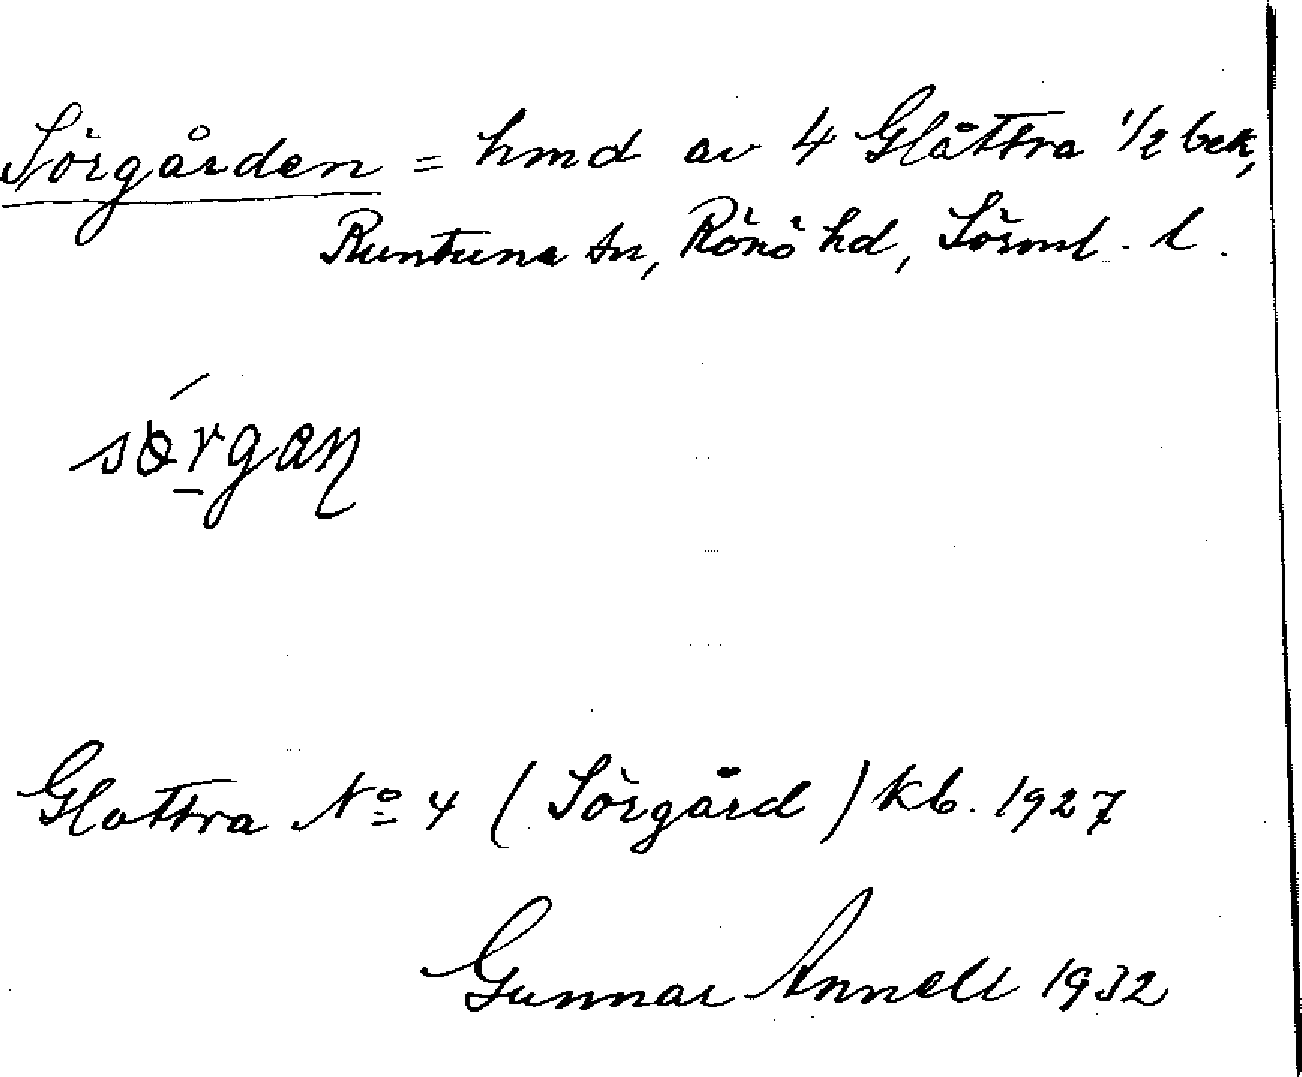 Sörgården = hmd av 4 Glåttra 1/2 bek,
Runtuna sn, Rönö hd, Sörml. l.
Glottra No 4 (Sörgård) kb. 1927
Gunnar Annell 1932